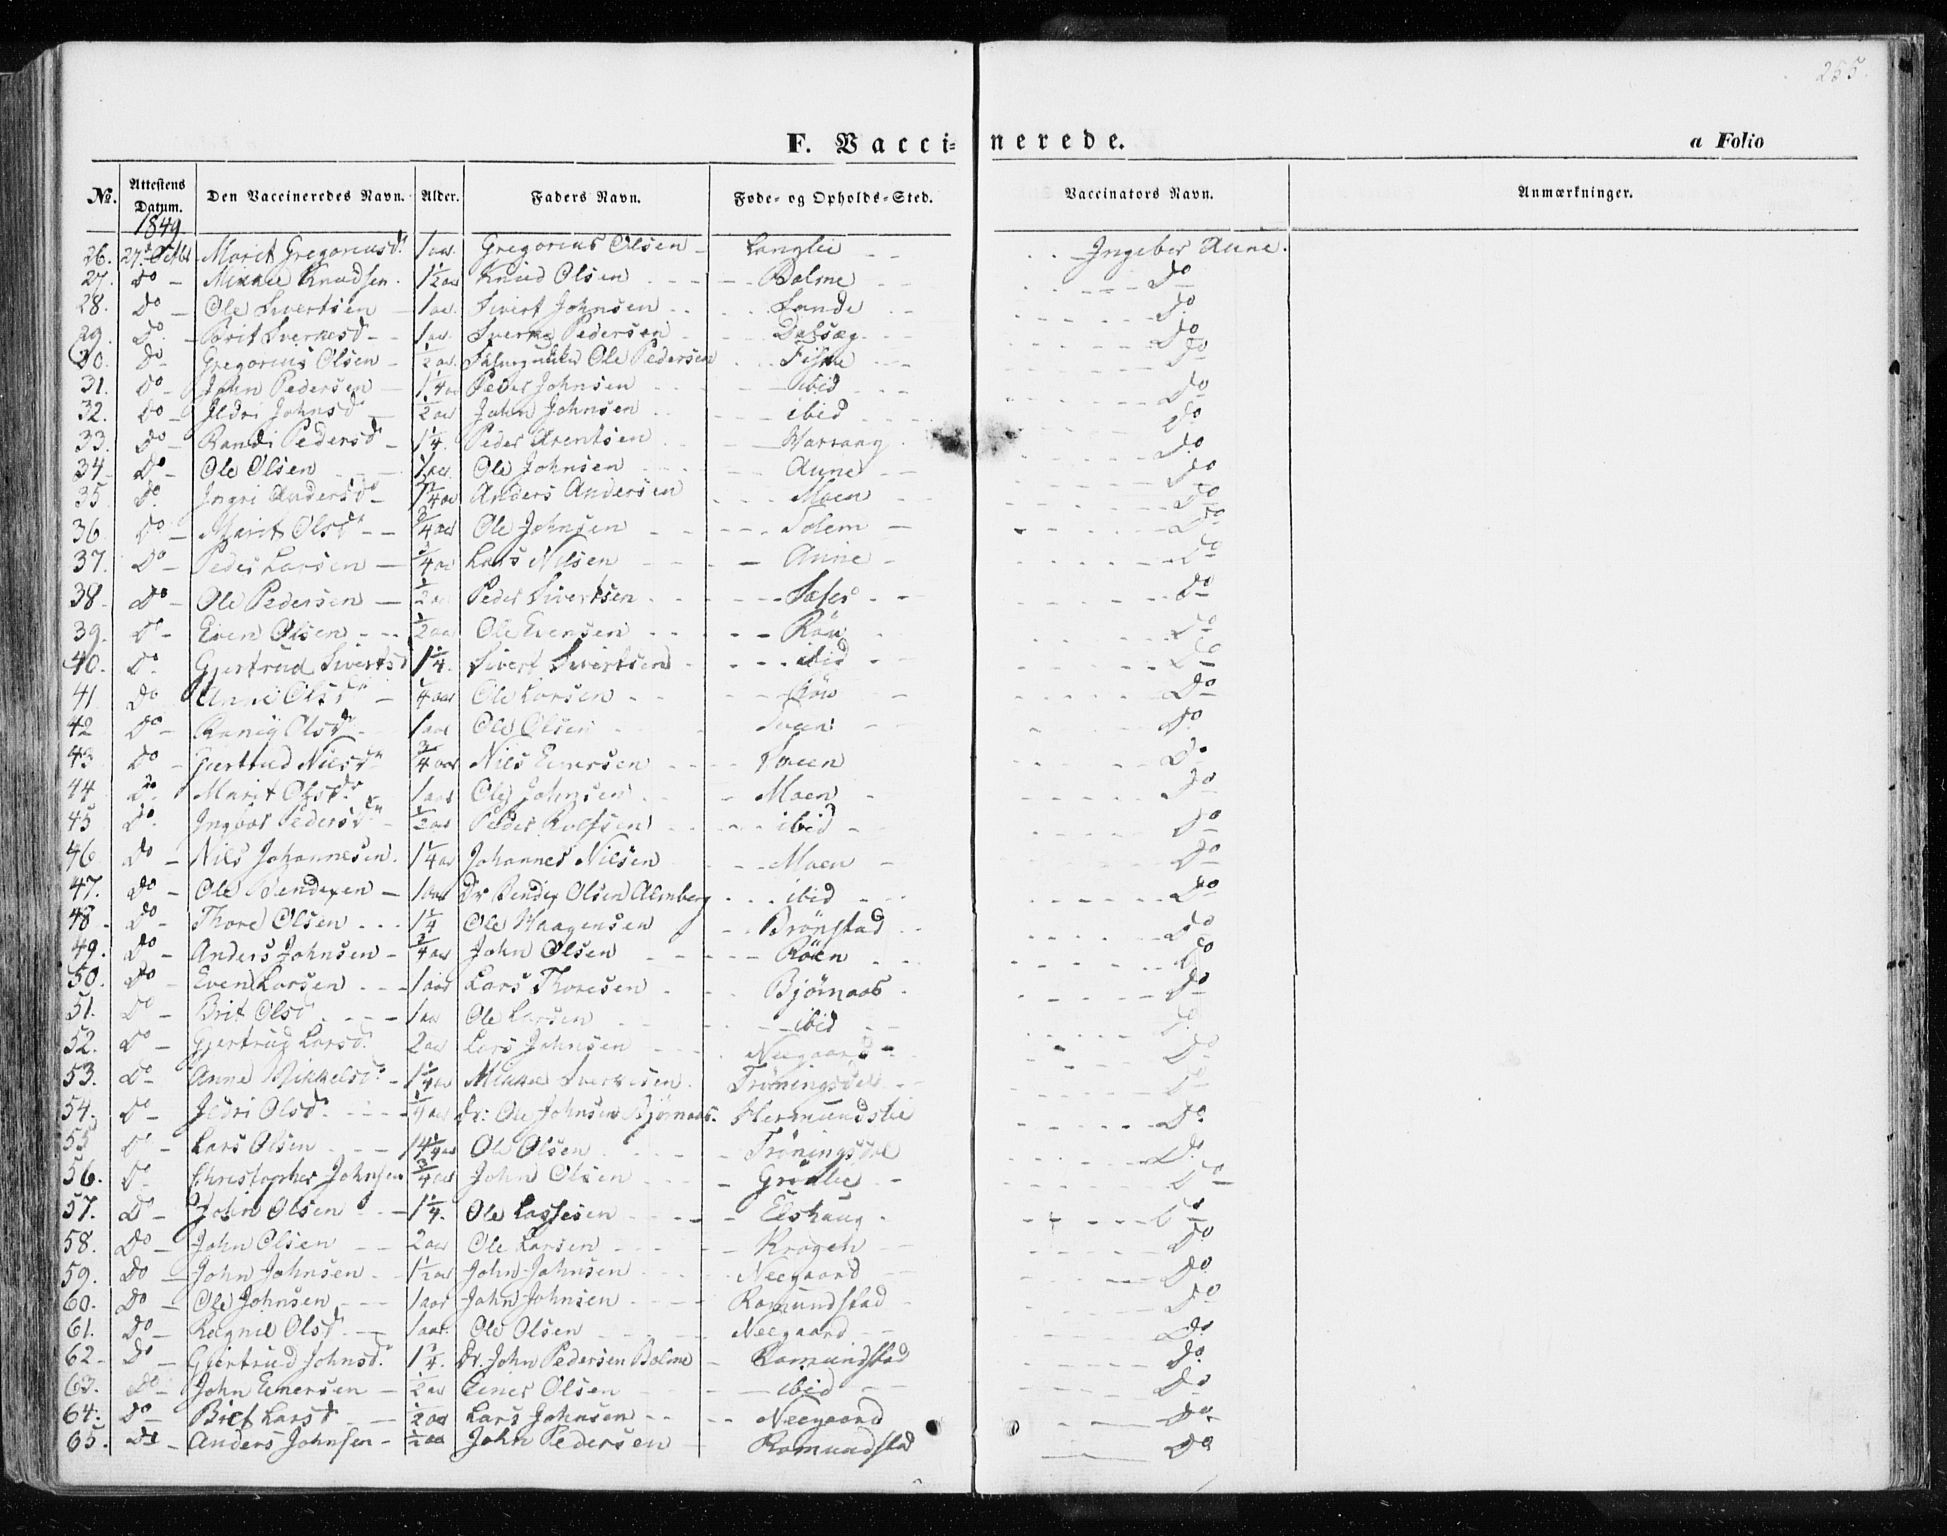 255.
F. Vaccinerede. a Folio
No. Attestens Datum. Den Vaccineredes Navn. Alder. Faders Navn. Føde- og Opholds-Sted. Vaccinators Navn. Anmærkninger.
1849
26. 27. Marit Gregoriusd. 1 aar Gregorius Olsen Langlie Ingeber Aune.
27. Do Mikkel Knudsen 1½ aar Knud Olsen Bolme Do
28. Do Ole Sivertsen 1 aar Sivert Johnsen Lande Do
29. Do Berit Sverkesd 1 aar Sverke Pedersen Dalsæg Do
30. Do Gregorius Olsen ½ aar Ole Pedersen Fiske Do
31. Do John Pedersen 1¼ aar Peder Johnsen ibid Do
32. Do Ildri Johnsd ½ aar John Johnsen ibid Do
33. Do Randi Pedersd 1¼ Peder Arentsen Do
34 Do Ole Olsen 1 aar Ole Johnsen Aune Do
35 Do Ingri Andersd ¼ aar Anders Andersen Moen Do
36 Do Marit Olsdr ¾ aar Ole Johnsen Solem Do
37. Do Peder Larsen ¾ aar Lars Nilsen Aune Do
38. Do Ole Pedersen ½ aar Peder Sivertsen Do
39. Do Even Olsen ½ aar Ole Evensen Røn Do
40. Do Gjertrud Sivertsd 1¼ Sivert Sivertsen ibid Do
41 Do Anne Olsdr ¼ aar Ole Larsen Røn Do
42 Do Olsdr 1 aar Ole Olsen Do
43 Do Giertrud Nilsdr ¾ aar Nils Einersen Do
44 Do Marit Olsdr 1 aar Ole Johnsen Moen Do
45 Do Ingbor Pedersdr ½ aar Peder Rolfsen ibid Do
46 Do Nils Johannesen 1¼ aar Johannes Nilsen Moen Do
47. Do Ole Bendixen 1 aar Dr Bendix Olsen Almberg ibid Do
48 Do Thore Olsen 1¼ Ole Haagensen Brønstad Do
49. Do Anders Johnsen ¾ aar John Olsen Røen Do
50. Do Even Larsen 1 aar Lars Thoresen Bjørnaas Do
51. Do Brit Olsd 1 aar Ole Larsen ibid Do
52. Do Gjertrud Larsd. 2 aar Lars Johnsen Neegaard Do
53. Do Anne Mikkelsd. 1¼ aar Mikkel Sverkesen Trøningsdal Do
54. Do Ildri Olsd. Dr: Ole Johnsen Bjørnaas. Hermundslie Do
55 Do Lars Olsen Ole Olsen Trøningsdal Do
56. Do Christopher Johnsen ¾ aar John Olsen Grønlie Do
57. Do John Olsen 1¼. Ole Lassesen Elshaug Do
58. Do John Olsen 2 aar Ole Larsen Krogeh Do
59. Do John Johnsen 1½ aar John Johnsen Neegaard Do
60. Do Ole Johnsen 1 aar John Johnsen Romundstad Do
61. Do Ragnil Olsd. 1 aar. Ole Olsen Neegaard Do
62. Do Gjertrud Johnsd. 1¼. Dr. John Pedersen Bolme Romundstad Do
63. Do John Einersen ½ aar Einer Olsen ibid Do
64. Do Brit Larsd ½ aar Lars Johnsen Neegaard Do
65. Do Anders Johnsen ½ aar John Pedersen Romundstad Do